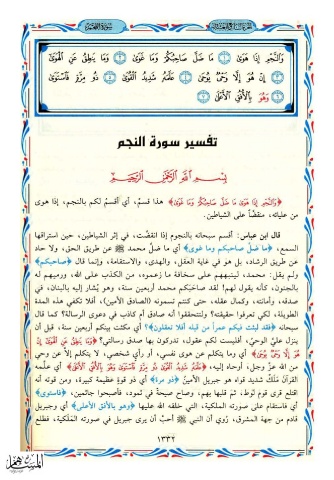 سورة النجم
وَالنَّجْمِ إِذَا هَوَىٰ ١ مَا ضَلَّ صَاحِبُكُمْ وَمَا غَوَىٰ ٢ وَمَا يَنطِقُ عَنِ الْهَوَىٰ
٣ إِنْ هُوَ إِلَّا وَحْيٌ يُوحَىٰ ٤ عَلَّمَهُ شَدِيدُ الْقُوَىٰ ٥ ذُو مِرَّةٍ فَاسْتَوَىٰ
٦ وَهُوَ بِالْأُفُقِ الْأَعْلَىٰ ٧
تفسير سورة النجم
بسم الله الرحمن الرحيم
﴿وَالنَّجْمِ إِذَا هَوَىٰ مَا ضَلَّ صَاحِبُكُمْ وَمَا غَوَىٰ﴾ هذا قسمٌ، أي أقسمُ لكم بالنجم، إذا هوى
من عليائه، منقضًّا على الشياطين.
قال ابن عباس: أقسم سبحانه بالنجوم إذا انقضَّت، في إثر الشياطين، حين استراقها
السمع، ﴿ما ضلَّ صاحبكم وما غوى﴾ أي ما ضلَّ محمد ﷺ عن طريق الحق، ولا حاد
عن طريق الرشاد، بل هو في غاية العقل، والهدى، والاستقامة، وإنما قال ﴿صاحبكم﴾
ولم يقل: محمد، لينبههم على سخافة ما زعموه، من الكذب على الله، ورميهم له
بالجنون، كأنه يقول لهم: لقد صاحبكم محمد أربعين سنة، وهو يُشار إليه بالبنان، في
صدقه، وأمانته، وكمال عقله، حتى كنتم تسمونه (الصادق الأمين)، أفلا تكفي هذه المدة
الطويلة، لكي تعرفوا حقيقته؟ ولتتحققوا أنه صادق أم كاذب في دعوى الرسالة؟ كما قال
سبحانه ﴿فقد لبثت فيكم عمراً من قبله أفلا تعقلون﴾؟ أي مكثت بينكم أربعين سنة، قبل أن
ينزل عليَّ الوحي، أفليست لكم عقول، تدركون بها صدق رسالتي؟ ﴿وَمَا يَنطِقُ عَنِ الْهَوَىٰ إِنْ
هُوَ إِلَّا وَحْيٌ يُوحَىٰ﴾ أي وما يتكلم عن هوى نفسي، أو رأي شخصي، لا يتكلم إلاَّ عن وحي
من الله عزَّ وجل، أوحاه إليه، ﴿عَلَّمَهُ شَدِيدُ الْقُوَىٰ ذُو مِرَّةٍ فَاسْتَوَىٰ وَهُوَ بِالْأُفُقِ الْأَعْلَىٰ﴾ أي علَّمه
القرآن مَلَكٌ شديد قواه هو جبريل الأمينُ ﴿ذو مرة﴾ أي ذو قوةٍ عظيمة كبيرة، ومن قوته أنه
اقتلع قرى قوم لوط، ثم قلبها بهم، وصاح صيحةً في ثمود، فأصبحوا جاثمين، ﴿فاستوى﴾
أي فاستقام على صورته الملكية، التي خلقه الله عليها ﴿وهو بالأفق الأعلى﴾ أي وجبريل
قادم من جهة المشرق، رُوي أن النبي ﷺ أحبَّ أن يرى جبريل في صورته الملكية، فطلع
١٣٣٢